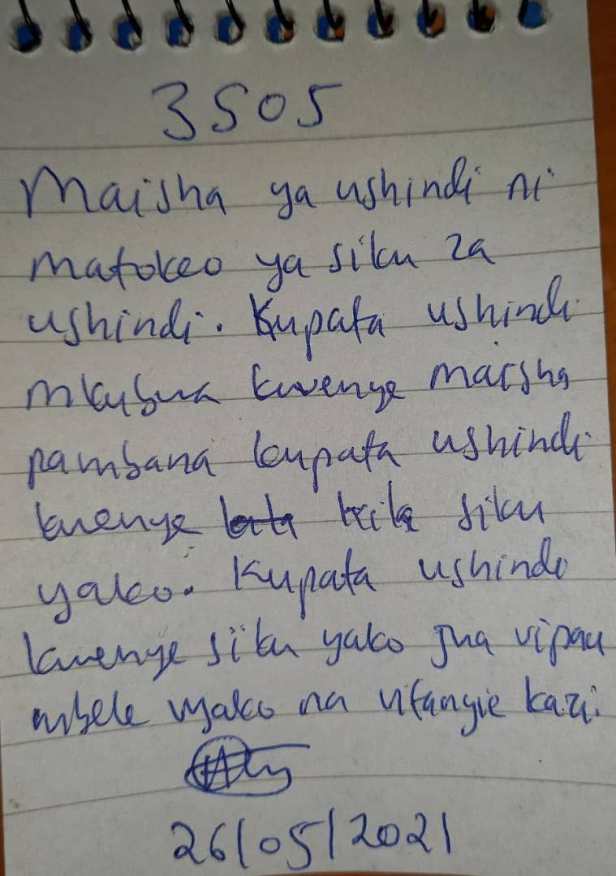 3505
Maisha ya ushindi ni
matokeo ya siku za
ushindi. Kupata ushindi
mkubwa kwenye maisha
pambana kupata ushindi
kwenye kila siku
yako. Kupata ushindi
kwenye siku yako jua vipau
mbele vyako na vifangie kazi.
26/05/2021